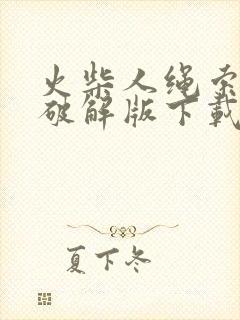 火柴人绳索
破解版下载
夏下冬